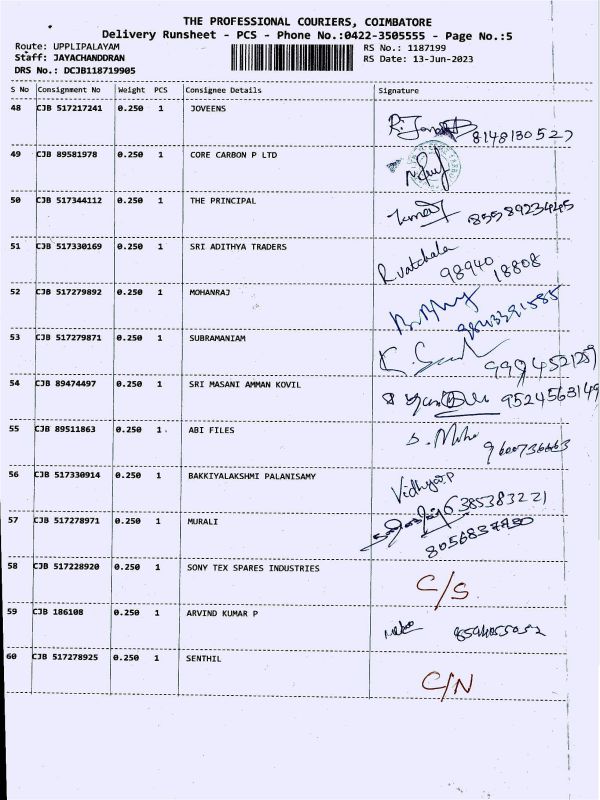 THE PROFESSIONAL COURIERS, COIMBATORE
Delivery Runsheet - PCS - Phone No.:0422-3505555 - Page No.:5
Route: UPPLIPALAYAM RS No.: 1187199
Staff: JAYACHANDDRAN RS Date: 13-Jun-2023
DRS No.: DCJB118719905
S No Consignment No Weight PCS Consignee Details Signature
48 CJB 517217241 0.250 1 JOVEENS 8148130527
49 CJB 89581978 0.250 1 CORE CARBON P LTD
50 CJB 517344112 0.250 1 THE PRINCIPAL
51 CJB 517330169 0.250 1 SRI ADITHYA TRADERS R.vatchala
98940 18808
52 CJB 517279892 0.250 1 MOHANRAJ
53 CJB 517279871 0.250 1 SUBRAMANIAM
54 CJB 89474497 0.250 1 SRI MASANI AMMAN KOVIL 9524563149
55 CJB 89511863 0.250 1 ABI FILES
56 CJB 517330914 0.250 1 BAKKIYALAKSHMI PALANISAMY Vidhya.P
6385383221
57 CJB 517278971 0.250 1 MURALI
58 CJB 517228920 0.250 1 SONY TEX SPARES INDUSTRIES C/S
59 CJB 186108 0.250 1 ARVIND KUMAR P
60 CJB 517278925 0.250 1 SENTHIL C/N